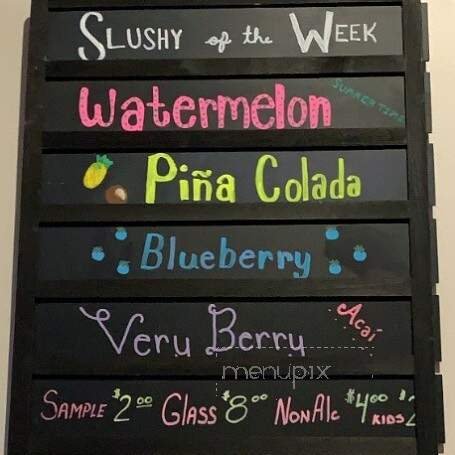 SLUSHY of the WEEK
Watermelon SUMMERTIME
Piña Colada
Blueberry
Very Berry Acai
menupix
SAMPLE $2.00 GLASS $8.00 NON Alc $4.00 KIDS $2